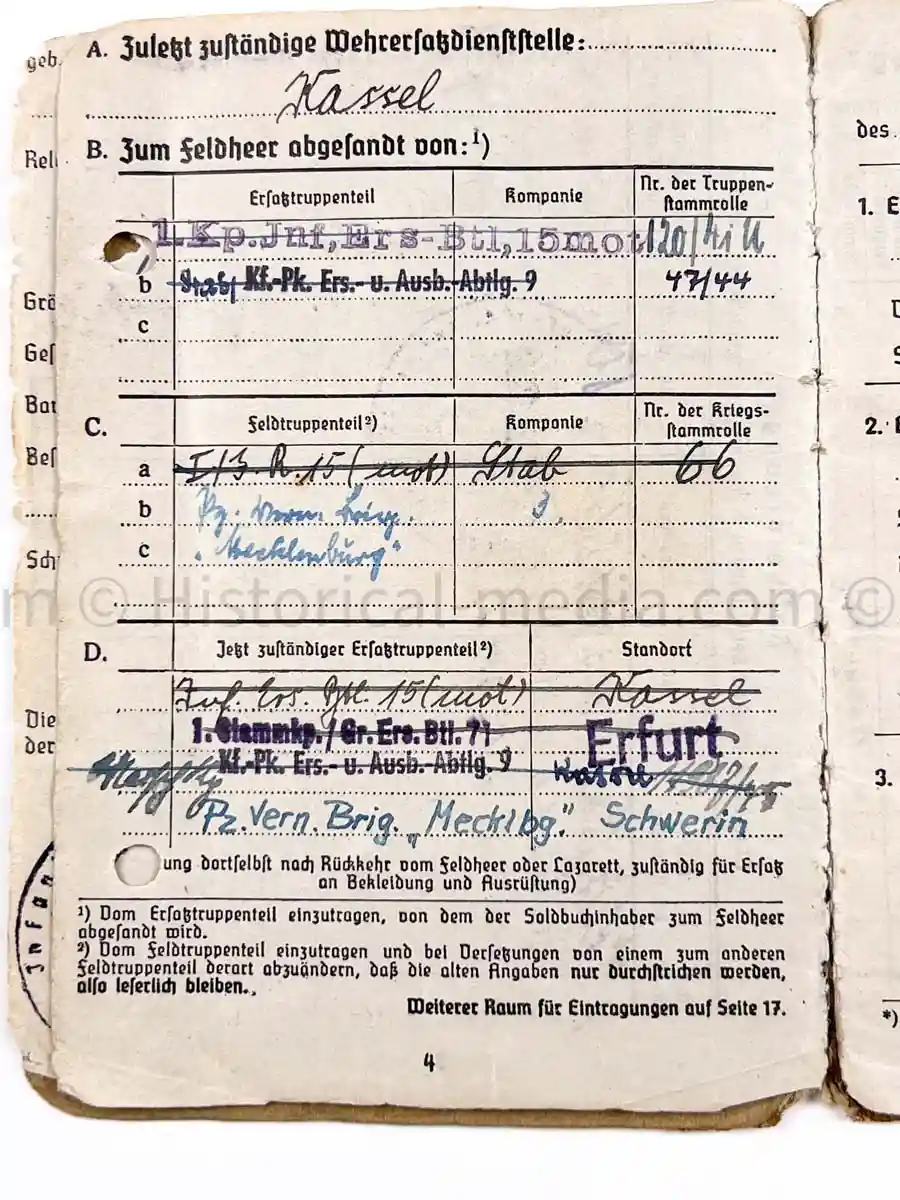 geb.
A. Zuletzt zuständige Wehrersatzdienststelle:
Kassel
B. Zum Feldheer abgesandt von:¹)
des
Rel
Ersatztruppenteil Kompanie Nr. der Truppen-
stammrolle
1. E
1. Kp.Jnf,Ers-Btl,15mot 120/
b Stab/ Kf.-Pk. Ers.- u. Ausb.-Abtlg. 9 47/44
Grö
c
Ges
Bar
C. Feldtruppenteil²) Kompanie Nr. der Kriegs-
stammrolle
2.
Bes
a I/J. R. 15 (mot) Stab 66
b Pz. Vern. Brig. 3.
c „Mecklenburg"
Sch
m © Historical-media.com ©
D. Jetzt zuständiger Ersatztruppenteil²) Standort
Inf. Ers. Btl. 15 (mot) Kassel
Die
der
1. Stammkp. / Gr. Ers. Btl. 71 Erfurt
Kf.-Pk. Ers.- u. Ausb.-Abtlg. 9 Kassel
3.
Pz. Vern. Brig. „Mecklbg." Schwerin
ung dortselbst nach Rückkehr vom Feldheer oder Lazarett, zuständig für Ersatz
an Bekleidung und Ausrüstung)
Infan
¹) Vom Ersatztruppenteil einzutragen, von dem der Soldbuchinhaber zum Feldheer
abgesandt wird.
²) Vom Feldtruppenteil einzutragen und bei Versetzungen von einem zum anderen
Feldtruppenteil derart abzuändern, daß die alten Angaben nur durchstrichen werden,
also leserlich bleiben.
Weiterer Raum für Eintragungen auf Seite 17.
*)
4